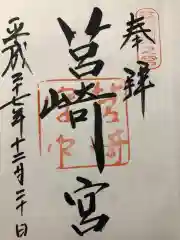 奉拝
筥崎宮
平成二十七年十二月二十日